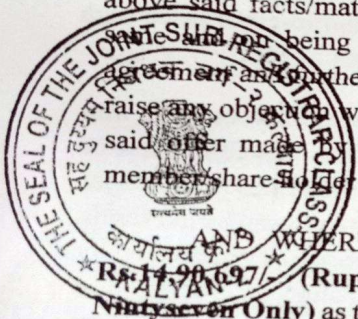 above said facts/mat
being
agreement
raise any objection w
said offer made by
member/share-holder
AND WHER
Rs.14,90,697/- (Rup
Nintyseven Only) as p
THE SEAL OF THE JOINT SUB REGISTRAR CLASS
सह दुय्यम निबंधक वर्ग -२
सत्यमेव जयते
कार्यालय
KALYAN